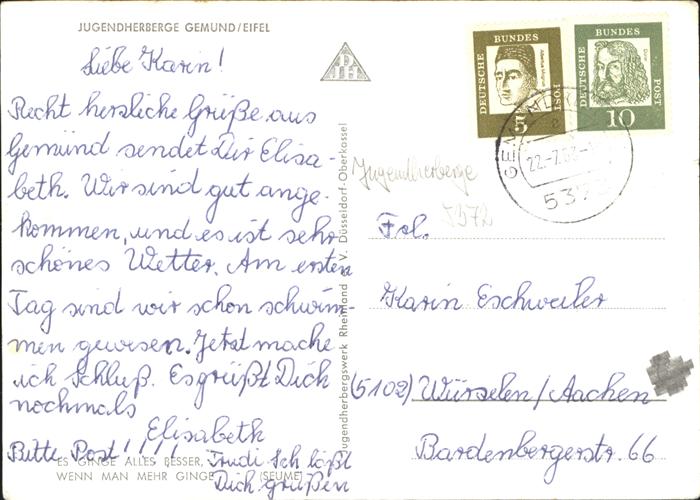 JUGENDHERBERGE GEMUND/EIFEL
Liebe Karin!
Recht herzliche Grüße aus
Gemünd sendet Dir Elisa-
beth. Wir sind gut ange-
kommen, und es ist sehr
schönes Wetter. Am ersten
Tag sind wir schon schwim-
men gewesen. Jetzt mache
ich Schluß. Es grüßt Dich
nochmals
Elisabeth
Bitte Post!!!!
Trudi Sch läßt
Dich grüßen
ES GINGE ALLES BESSER,
WENN MAN MEHR GINGE (SEUME)
Jugendherbergswerk Rheinland e. V. Düsseldorf-Oberkassel
DJH
DEUTSCHE BUNDES POST
Albertus Magnus
5
DEUTSCHE BUNDES POST
Dürer
10
22.-7.63
5372
Jugendherberge
5372
Frl.
Karin Eschweiler
(5102) Würselen/Aachen
Bardenbergerstr. 66